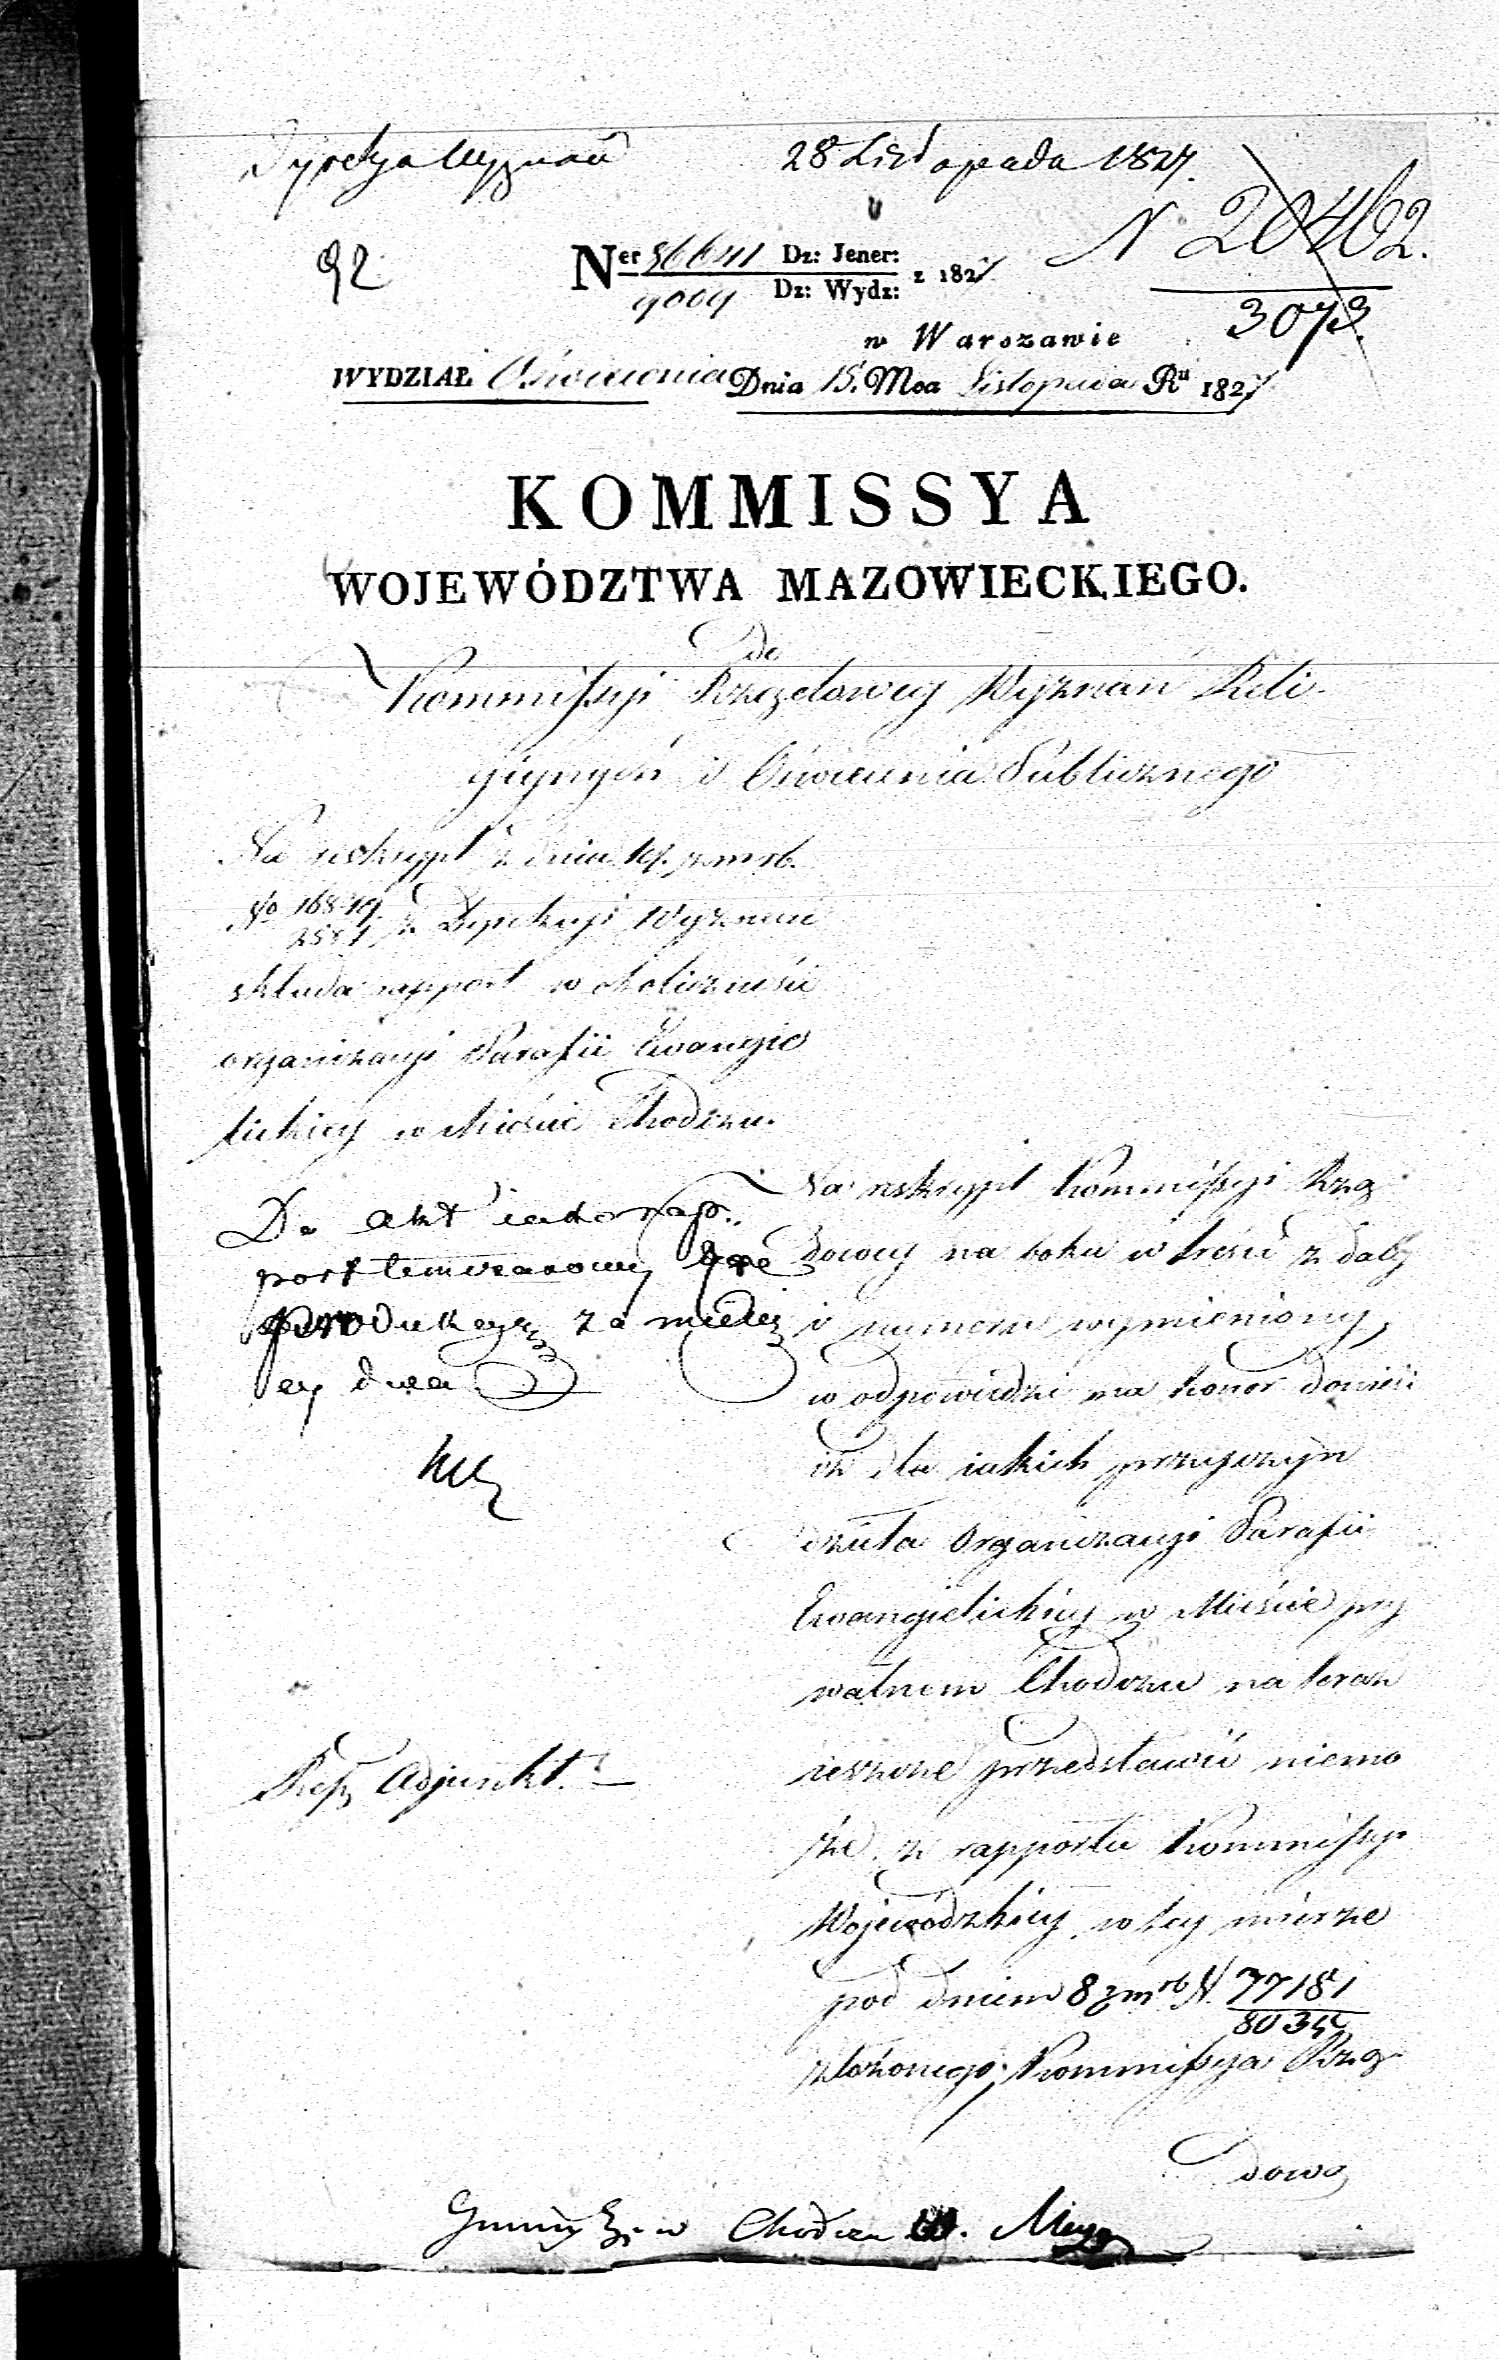 Dyrekcya Wyznań
28 Listopada 1827.
92
N 20462.
3073.
Ner 56641 Dz: Jener:
9009 Dz: Wydz: z 1827
w Warszawie
WYDZIAŁ Oświecenia Dnia 15. Mca Listopada Ru 1827
KOMMISSYA
WOJEWÓDZTWA MAZOWIECKIEGO.
do
Kommissyi Rządowey Wyznań Reli-
giynych i Oświecenia Publicznego
Na reskrypt z dnia 19. p.m rb.
No 16849
2581 z Dyrekcyi Wyznań
składa rapport w okoliczności
organizacyi Parafii Ewangie
lickiey w Mieście Chodczu.
Do akt iako rap-
port tymczasowy
produkcya za miesię
cy dwa
Na reskrypt Kommissyi Rzą
dowey na boku w treści z daty
i numeru wymieniony,
w odpowiedzi ma honor donieść
iż dla iakich przyczyn
dzieła Organizacyi Parafii
Ewangielickiey w Mieście pry
watnem Chodczu na teraz
ieszcze przedstawić niemo
że, z rapportu Kommissyi
Wojewódzkiey w tey mierze
pod dniem 8 z m rb N. 77181
8034
złożonego; Kommissya Rzą
dowa
Refr Adjunkt.
Gminy Ew. w Chodczu W. Maz